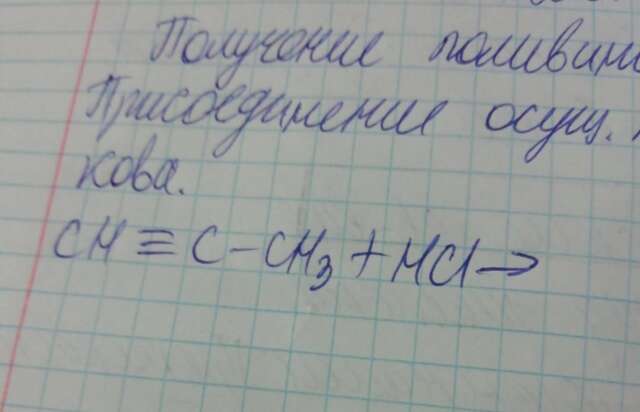 Получение поливини
Присоединение осущ.
кова.
CH≡C-CH₃+HCl→